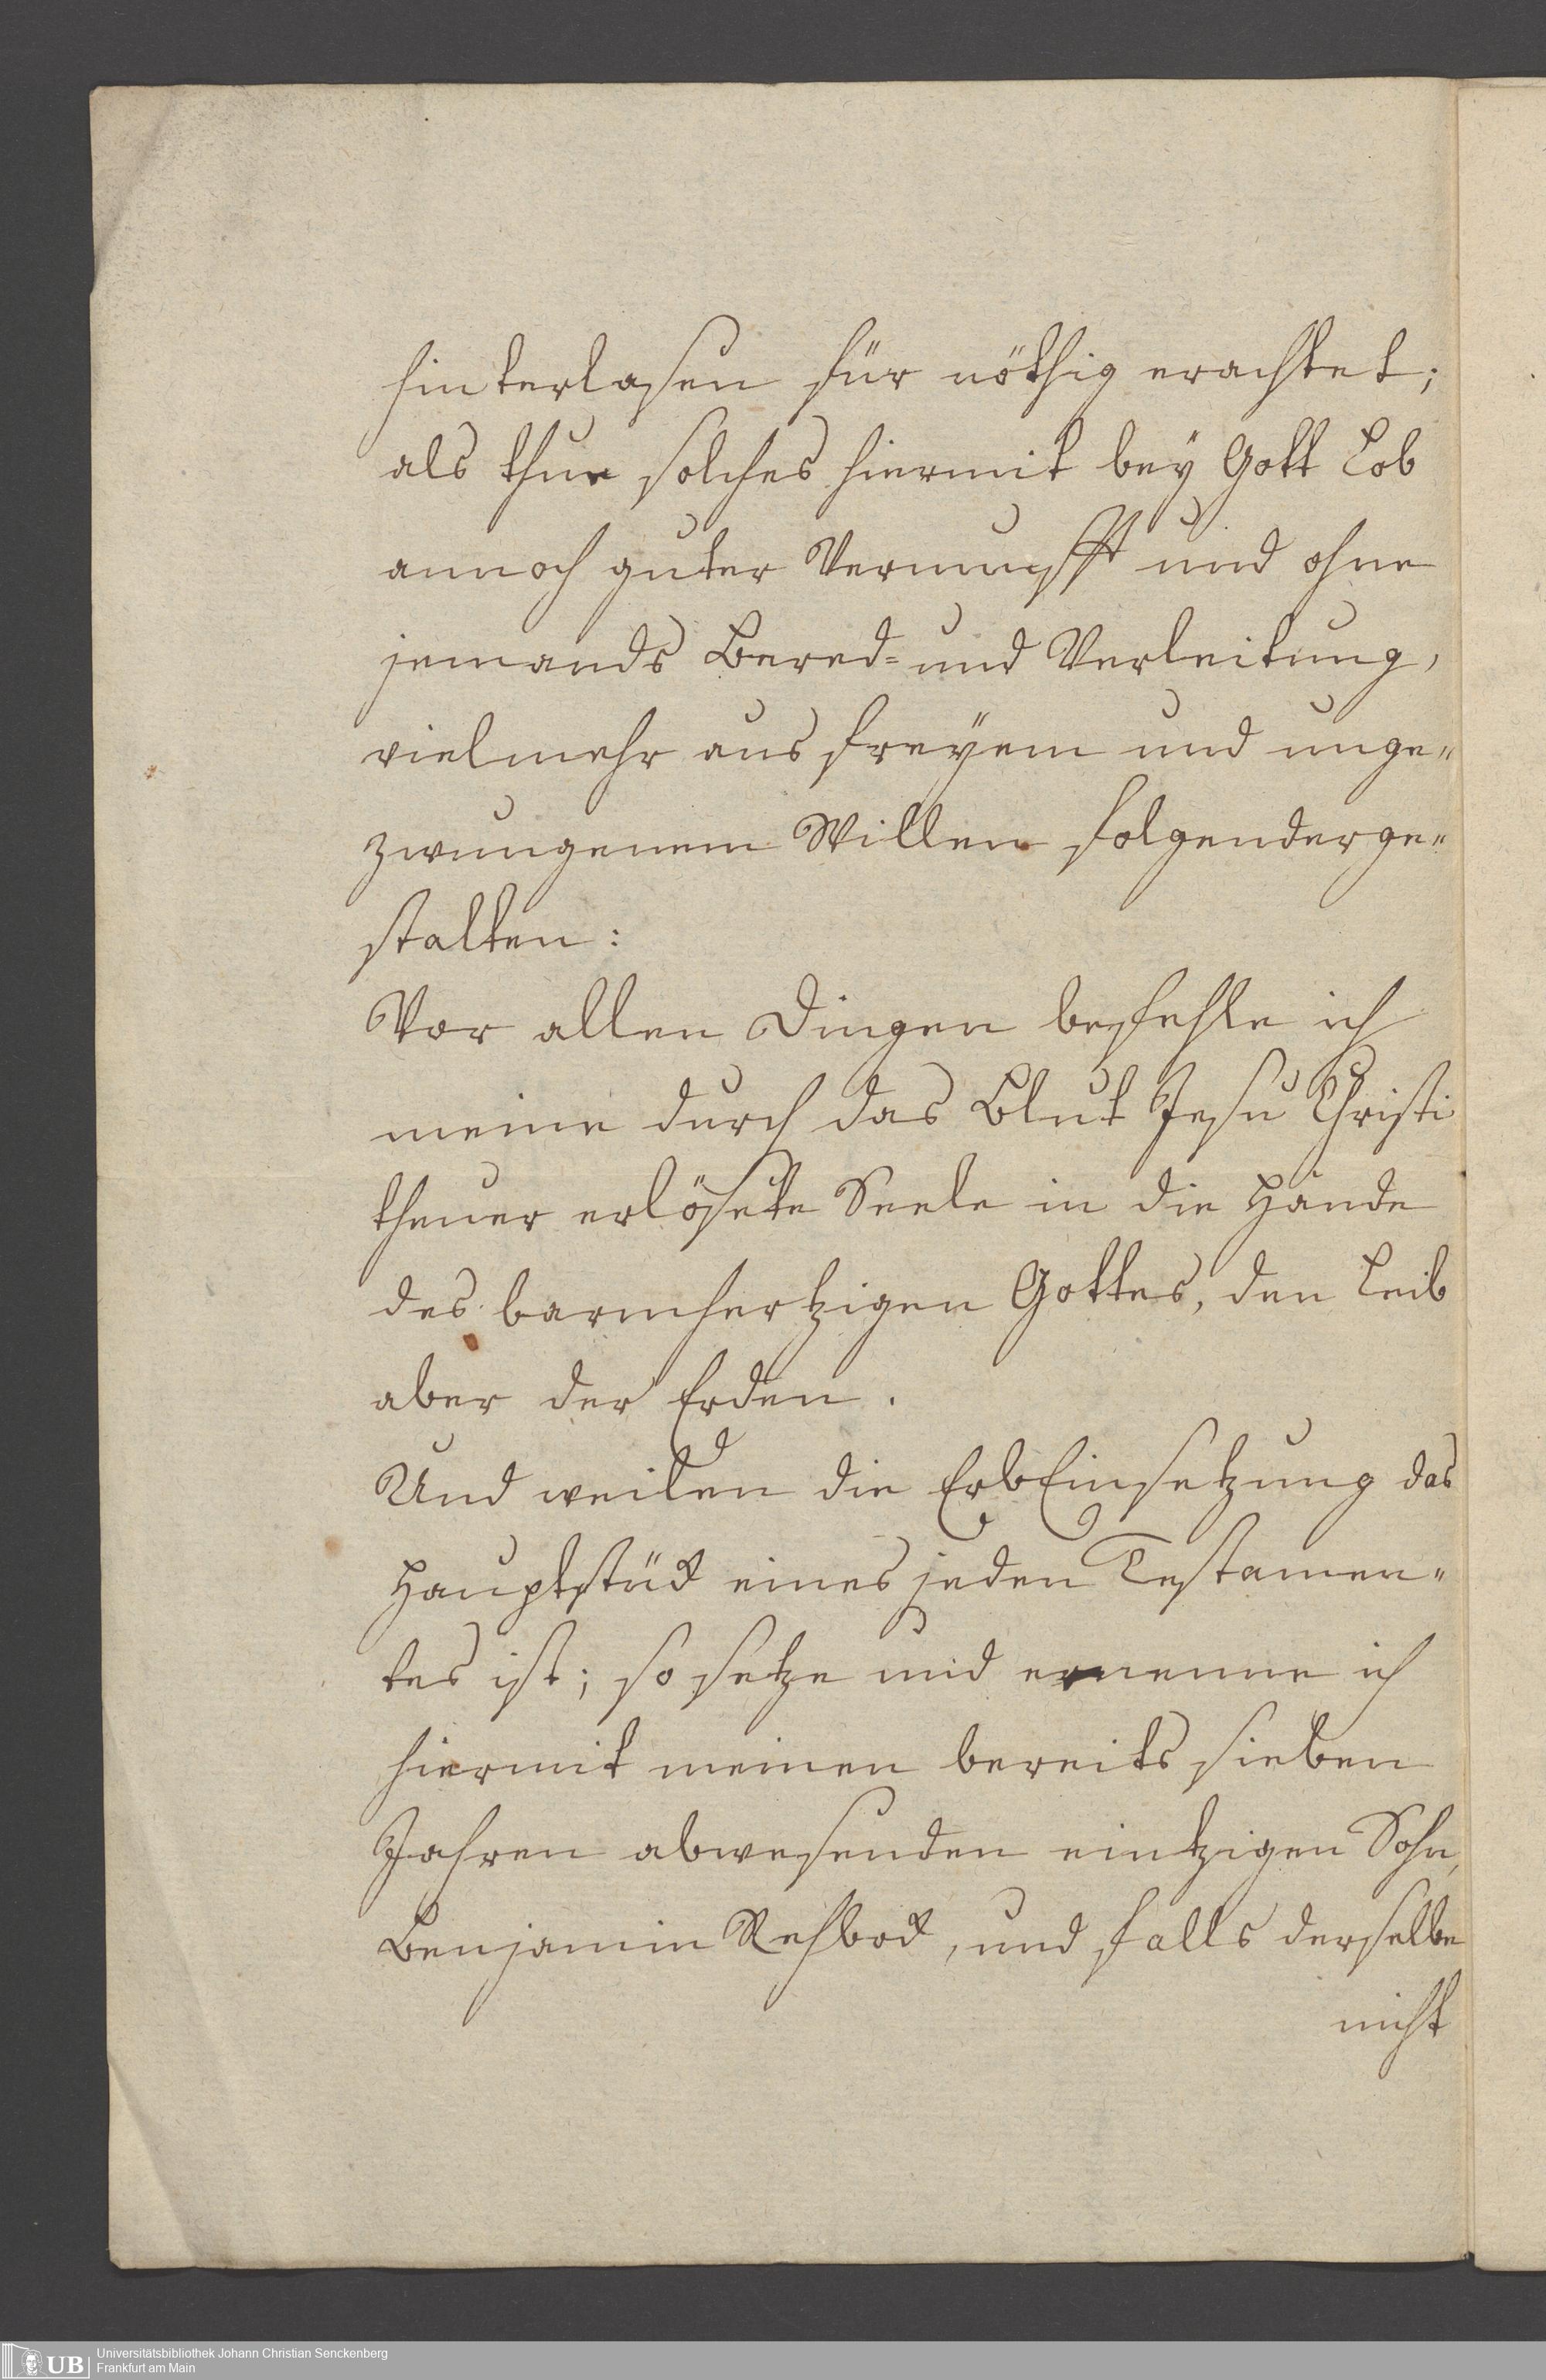 hinterlasen für nöthig erachtet;
als thue solches hiermit bey Gott Lob
annoch guter Vernunfft und ohne
jemands Bered= und Verleitung,
vielmehr aus freÿem und unge„
zwungenem Willen folgenderge„
stalten:
Vor allen Dingen befehle ich
meine durch das Blut Jesu Christi
theuer erlösete Seele in die Hände
des barmhertzigen Gottes, den Leib
aber der Erden.
Und weilen die ErbEinsetzung das
Hauptstück eines jeden Testamen„
tes ist; so setze und ernenne ich
hiermit meinen bereits sieben
Jahren abwesenden eintzigen Sohn,
Benjamin Rehbock, und falls derselbe
nicht
UB
Universitätsbibliothek Johann Christian Senckenberg
Frankfurt am Main